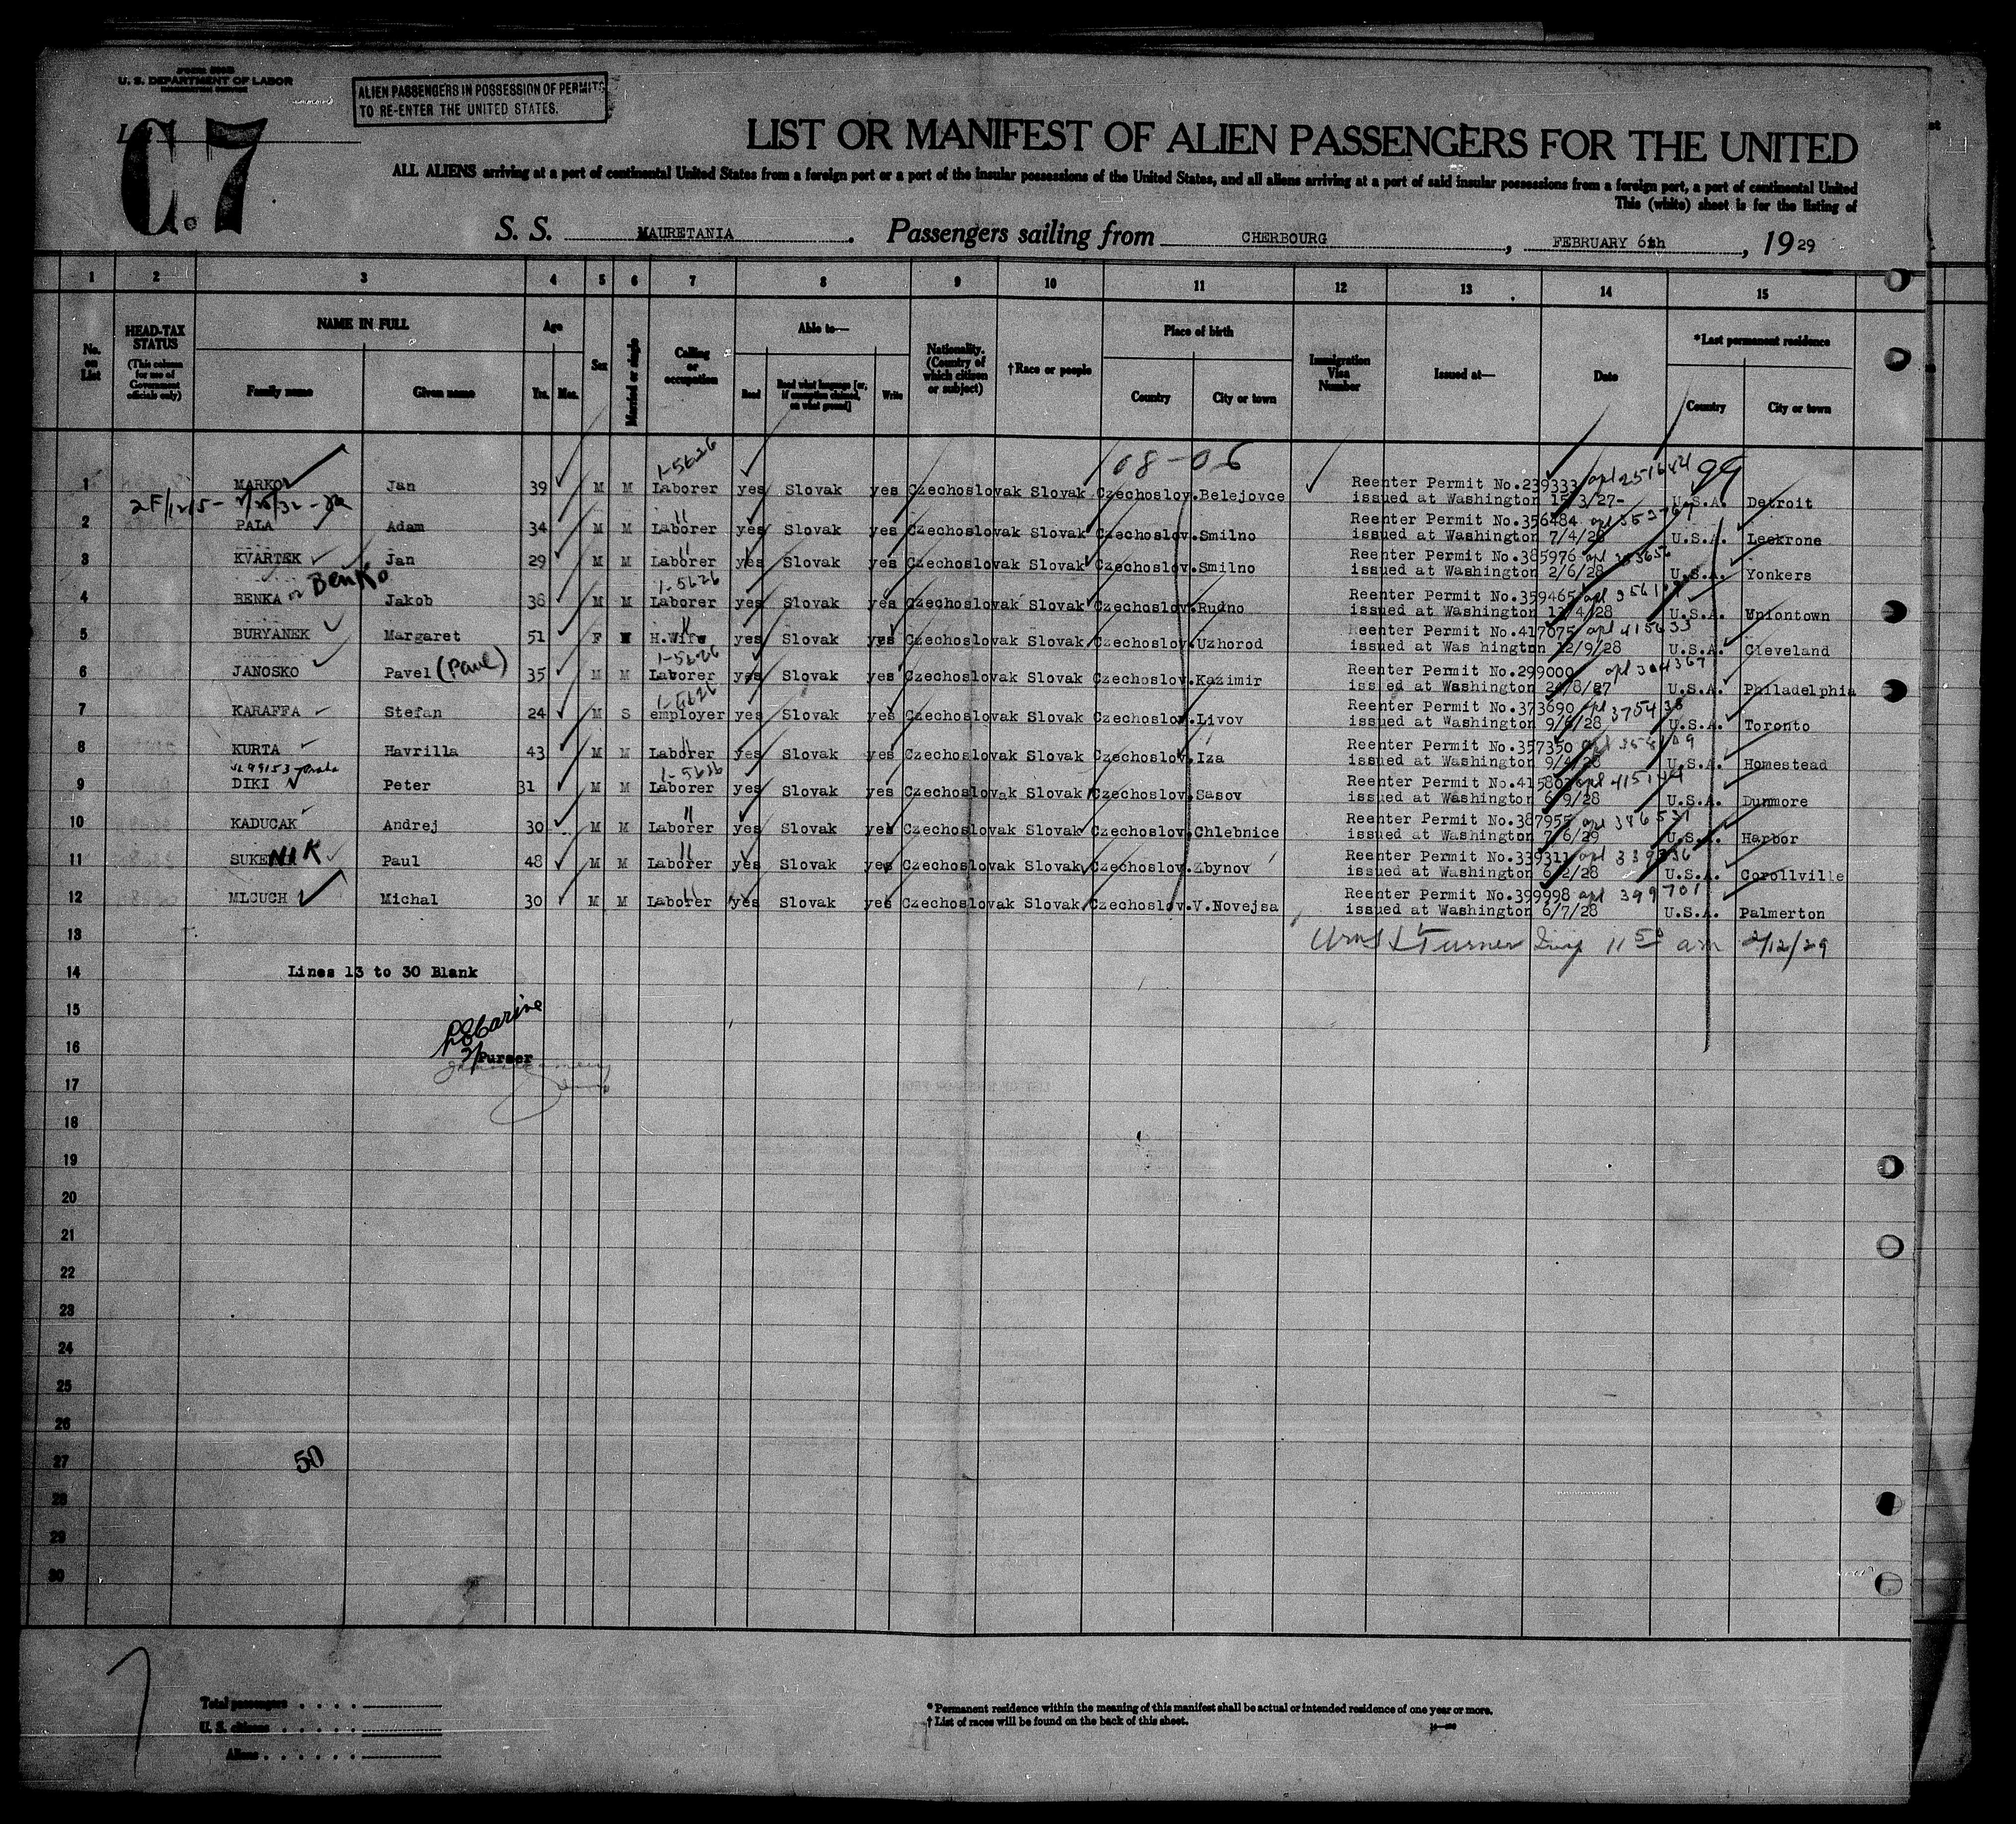 U. S. DEPARTMENT OF LABOR
ALIEN PASSENGERS IN POSSESSION OF PERMITS
TO RE-ENTER THE UNITED STATES.
C.7
LIST OR MANIFEST OF ALIEN PASSENGERS FOR THE UNITED
ALL ALIENS arriving at a port of continental United States from a foreign port or a port of the insular possessions of the United States, and all aliens arriving at a port of said insular possessions from a foreign port, a port of continental United
This (white) sheet is for the listing of
S. S. MAURETANIA. Passengers sailing from CHERBOURG, FEBRUARY 6th, 1929
1 2 3 4 5 6 7 8 9 10 11 12 13 14 15
No. on List
HEAD-TAX STATUS
(This column for use of Government officials only)
NAME IN FULL
Family name Given name
Age
Yrs. Mos.
Sex
Married or single
Calling or occupation
Able to—
Read Read what language [or, if exemption claimed, on what ground] Write
Nationality. (Country of which citizen or subject)
†Race or people
Place of birth
Country City or town
Immigration Visa Number
Issued at—
Date
*Last permanent residence
Country City or town
1-5626 108-06 99
1 MARKO Jan 39 M M Laborer yes Slovak yes Czechoslovak Slovak Czechoslov. Belejovce Reenter Permit No.239333 apl 251644
issued at Washington 15/3/27- U.S.A. Detroit
2 PALA Adam 34 M M Laborer yes Slovak yes Czechoslovak Slovak Czechoslov. Smilno Reenter Permit No.356484
issued at Washington 7/4/28 U.S.A. Leckrone
3 KVARTEK Jan 29 M M Laborer yes Slovak yes Czechoslovak Slovak Czechoslov. Smilno Reenter Permit No.385976
issued at Washington 2/6/28 U.S.A. Yonkers
or Benko 1-5626
4 BENKA Jakob 38 M M Laborer yes Slovak yes Czechoslovak Slovak Czechoslov. Rudno Reenter Permit No.359465
issued at Washington 12/4/28 U.S.A. Uniontown
5 BURYANEK Margaret 51 F H.Wife yes Slovak yes Czechoslovak Slovak Czechoslov. Uzhorod Reenter Permit No.417075 apl 415633
issued at Was hington 12/9/28 U.S.A. Cleveland
1-5626
6 JANOSKO Pavel (Paul) 35 M M Laborer yes Slovak yes Czechoslovak Slovak Czechoslov. Kazimir Reenter Permit No.299000 apl 304367
issued at Washington 24/8/27 U.S.A. Philadelphia
1-5626
7 KARAFFA Stefan 24 M S employer yes Slovak yes Czechoslovak Slovak Czechoslov. Livov Reenter Permit No.373690 apl 375438
issued at Washington 9/6/28 U.S.A. Toronto
8 KURTA Havrilla 43 M M Laborer yes Slovak yes Czechoslovak Slovak Czechoslov. Iza Reenter Permit No.357350
issued at Washington 9/4/28 U.S.A. Homestead
1-5626
9 DIKI Peter 31 M M Laborer yes Slovak yes Czechoslovak Slovak Czechoslov. Sasov Reenter Permit No.
issued at Washington 6/9/28 U.S.A. Dunmore
10 KADUCAK Andrej 30 M M Laborer yes Slovak yes Czechoslovak Slovak Czechoslov. Chlebnice Reenter Permit No.387955 apl 386531
issued at Washington 7/6/29 U.S.A. Harbor
11 SUKENIK Paul 48 M M Laborer yes Slovak yes Czechoslovak Slovak Czechoslov. Zbynov Reenter Permit No.339311
issued at Washington 6/2/28 U.S.A. Corollville
12 MLCUCH Michal 30 M M Laborer yes Slovak yes Czechoslovak Slovak Czechoslov. V.Novejsa Reenter Permit No.399998 apl 399701
issued at Washington 6/7/28 U.S.A. Palmerton
13 Turner Insp 11 50 am 2/12/29
14 Lines 13 to 30 Blank
15
16 Purser
17
18
19
20
21
22
23
24
25
26
27 50
28
29
30
Total passengers
U. S. citizens
Aliens
* Permanent residence within the meaning of this manifest shall be actual or intended residence of one year or more.
† List of races will be found on the back of this sheet.